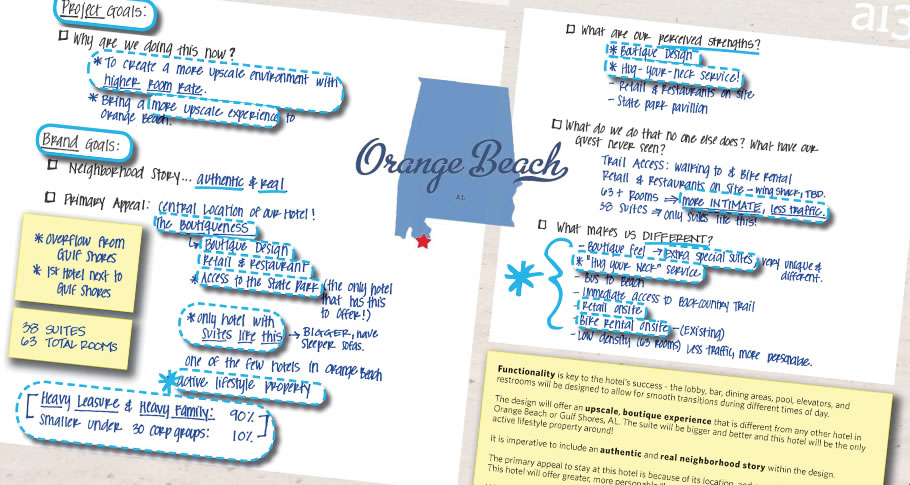 Project Goals:
Why are we doing this now?
* To create a more upscale environment with
higher room rate.
* Bring a more upscale experience to
Orange Beach.
Brand Goals:
Neighborhood Story... authentic & real
Primary Appeal: central location of our hotel!
The Boutiqueness
Boutique Design
Retail & Restaurant
* Access to the State Park (the only hotel
that has this
to offer!)
* overflow from
Gulf Shores
* 1st hotel next to
Gulf Shores
38 SUITES
63 TOTAL ROOMS
* only hotel with
suites like this → Bigger, have
sleeper sofas.
one of the few hotels in Orange Beach
* active lifestyle property
Heavy Leasure & Heavy Family: 90%
smaller under 30 corp groups: 10%
Orange Beach
AL
ai3
What are our perceived strengths?
* Boutique Design
* Hug-your-neck service!
- Retail & Restaurants on site
- State park pavilion
What do we do that no one else does? What have our
guest never seen?
Trail Access: walking to & Bike Rental
Retail & Restaurants on site - wing shack, TBD.
63 + rooms ⇒ more INTIMATE, less traffic.
38 suites ⇒ only suites like this!
What makes us DIFFERENT?
- Boutique feel → Extra special suites very unique &
different.
* "Hug your Neck" service
- Bus to Beach
- Immediate access to Backcountry Trail
- Retail onsite
- Bike rental onsite - (Existing)
- Low density (63 rooms) less traffic, more personable.
Functionality is key to the hotel's success - the lobby, bar, dining areas, pool, elevators, and
restrooms will be designed to allow for smooth transitions during different times of day.
The design will offer an upscale, boutique experience that is different from any other hotel in
Orange Beach or Gulf Shores, AL. The suite will be bigger and better and this hotel will be the only
active lifestyle property around!
It is imperative to include an authentic and real neighborhood story within the design.
The primary appeal to stay at this hotel is because of its location, and
This hotel will offer greater, more